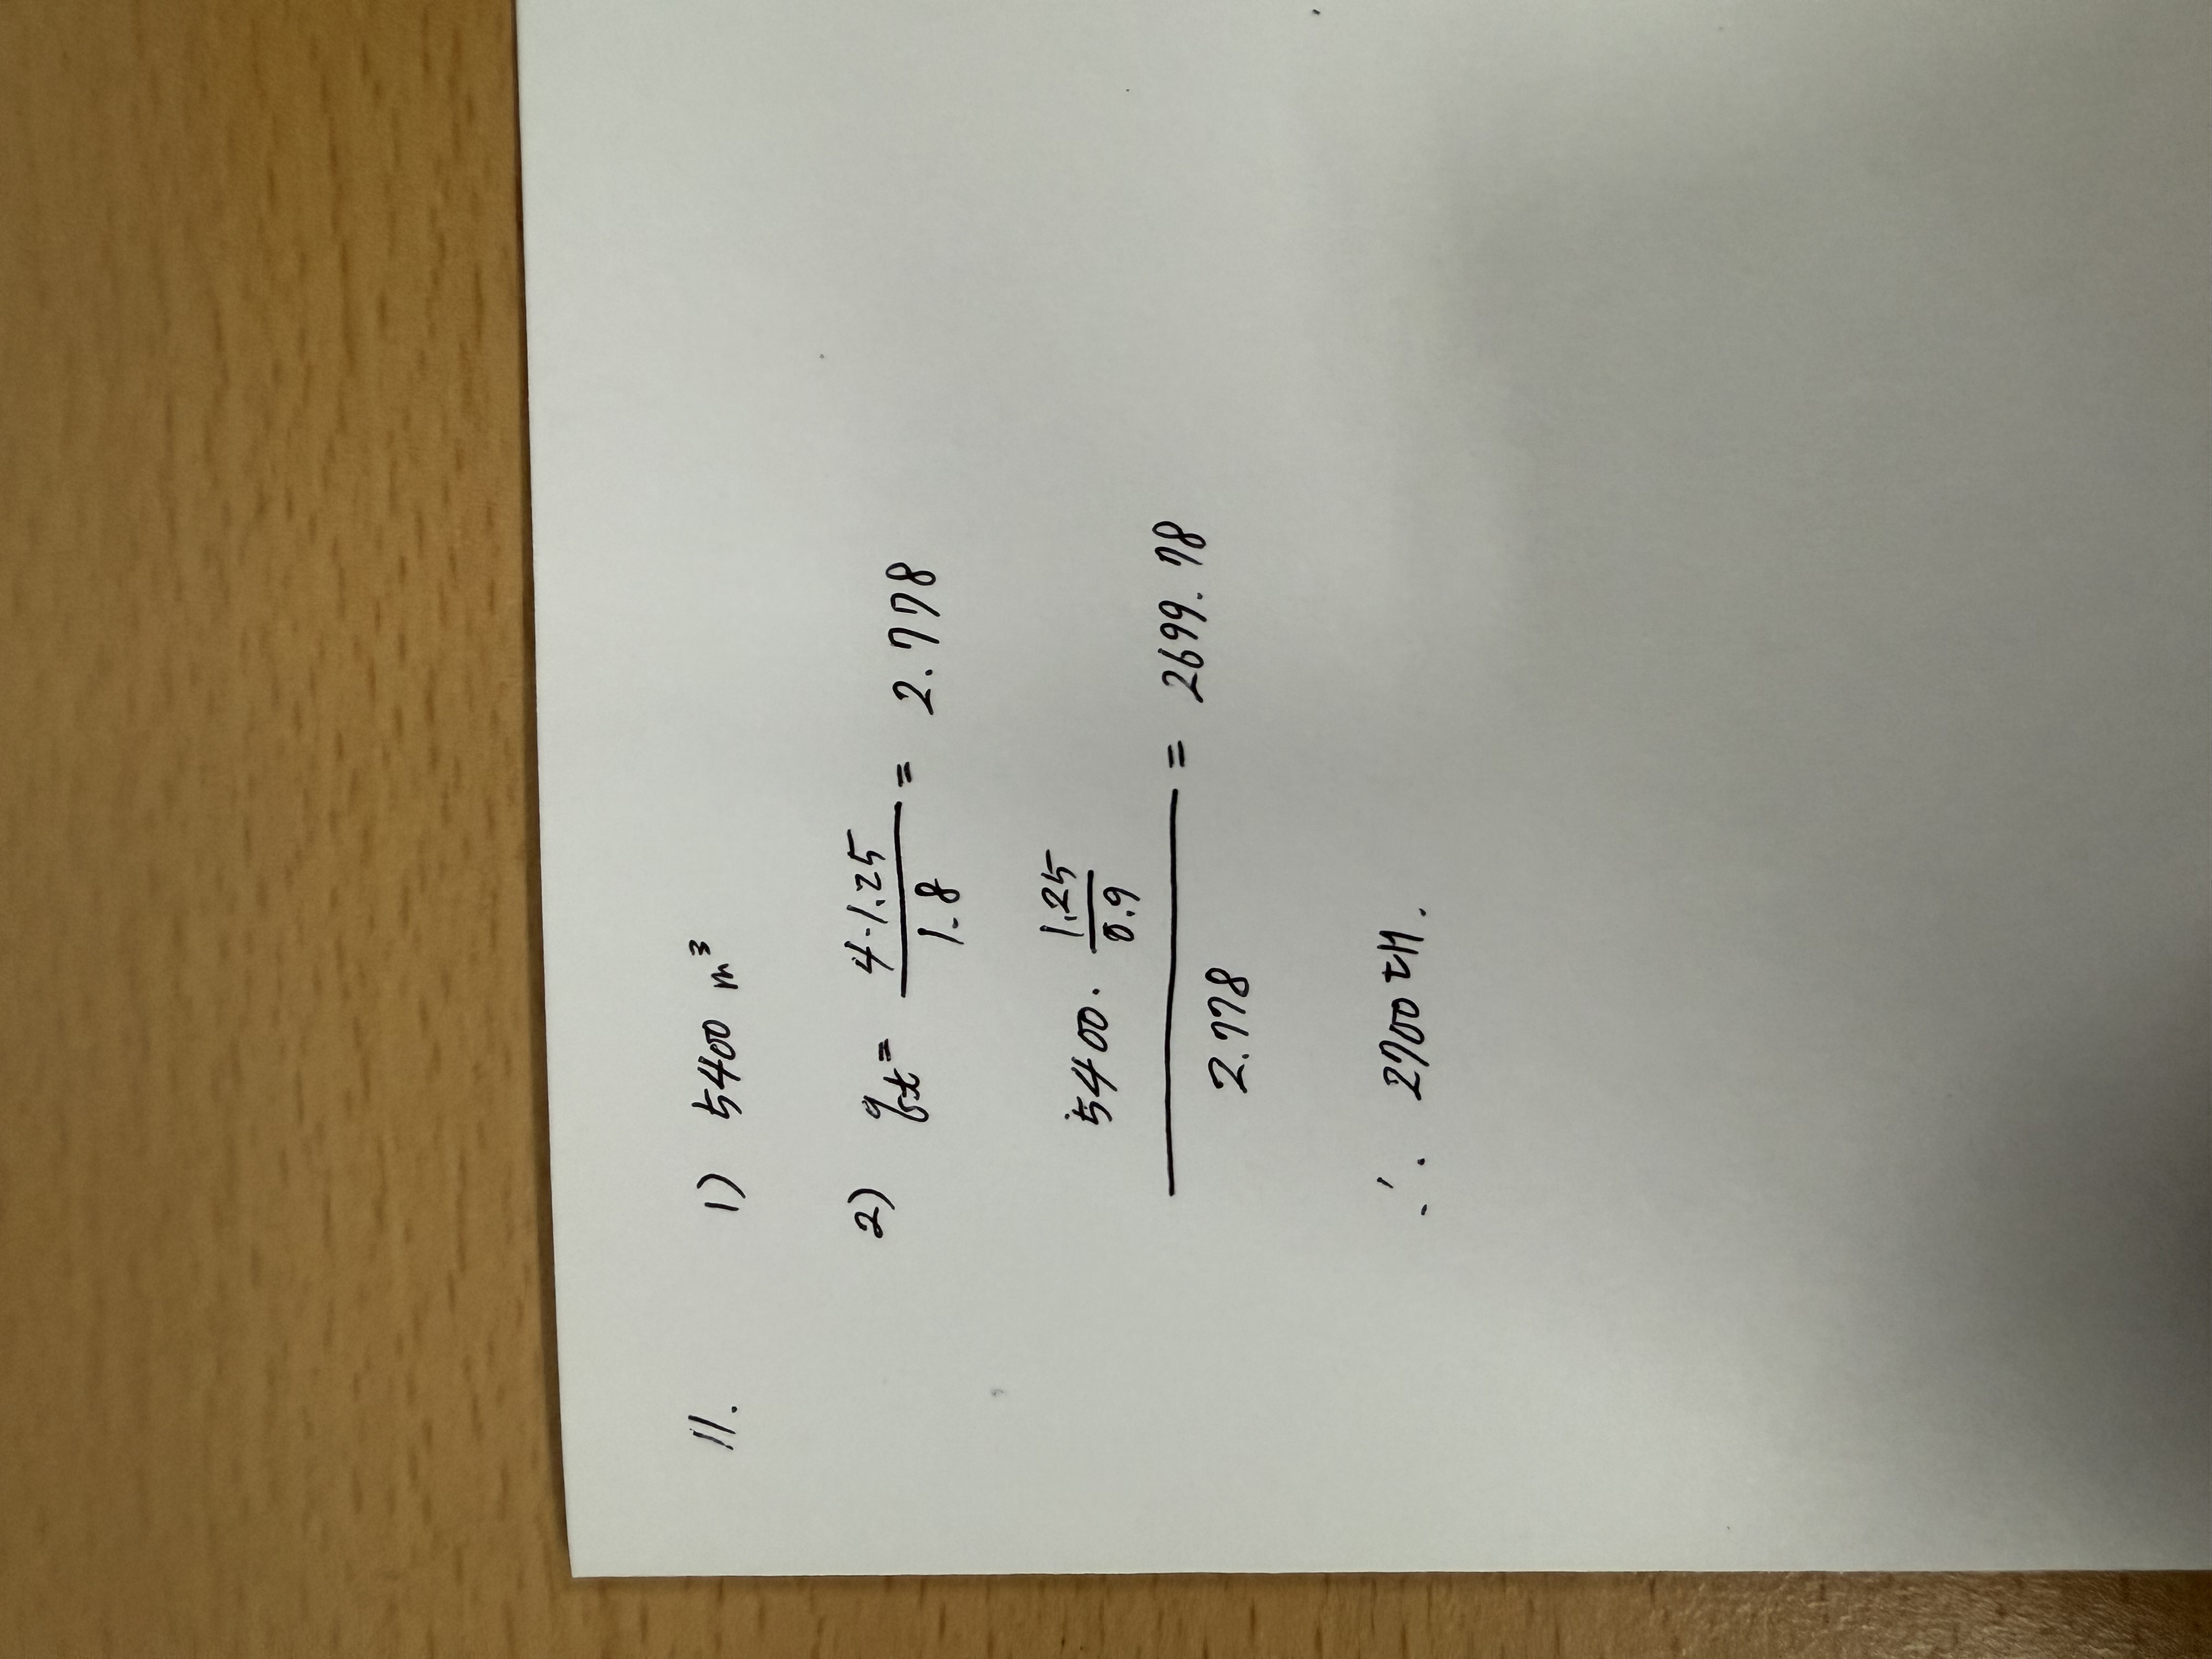 11. 1) 5400 m³
2) qt = 4·1.25 / 1.8 = 2.778
5400 · 1.25 / 0.9 / 2.778 = 2699.78
∴ 2700대.